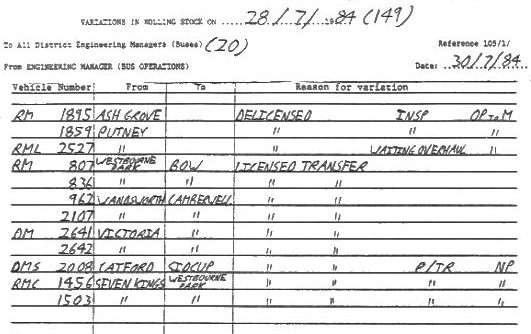 VARIATIONS IN ROLLING STOCK ON ..... 28/7/1984 (149)
To All District Engineering Managers (Buses) (20) Reference 105/1/
From ENGINEERING MANAGER (BUS OPERATIONS) Date: 30/7/84
Vehicle Number From To Reason for variation
RM 1895 ASH GROVE DELICENSED INSP OP to M
1859 PUTNEY " " "
RML 2527 " " WAITING OVERHAUL "
RM 807 WESTBOURNE PARK BOW LICENSED TRANSFER
836 " " " "
962 WANDSWORTH CAMBERWELL " "
2107 " " " "
DM 2641 VICTORIA " " "
2642 " " " "
DMS 2008 CATFORD SIDCUP " " P/TR NP
RMC 1456 SEVEN KINGS WESTBOURNE PARK " " " "
1503 " " " " " "